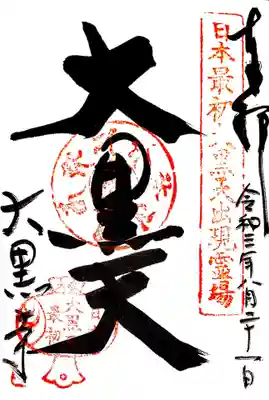 日本最初大黒天出現霊場
令和三年八月二十一日
大黒天
大黒寺